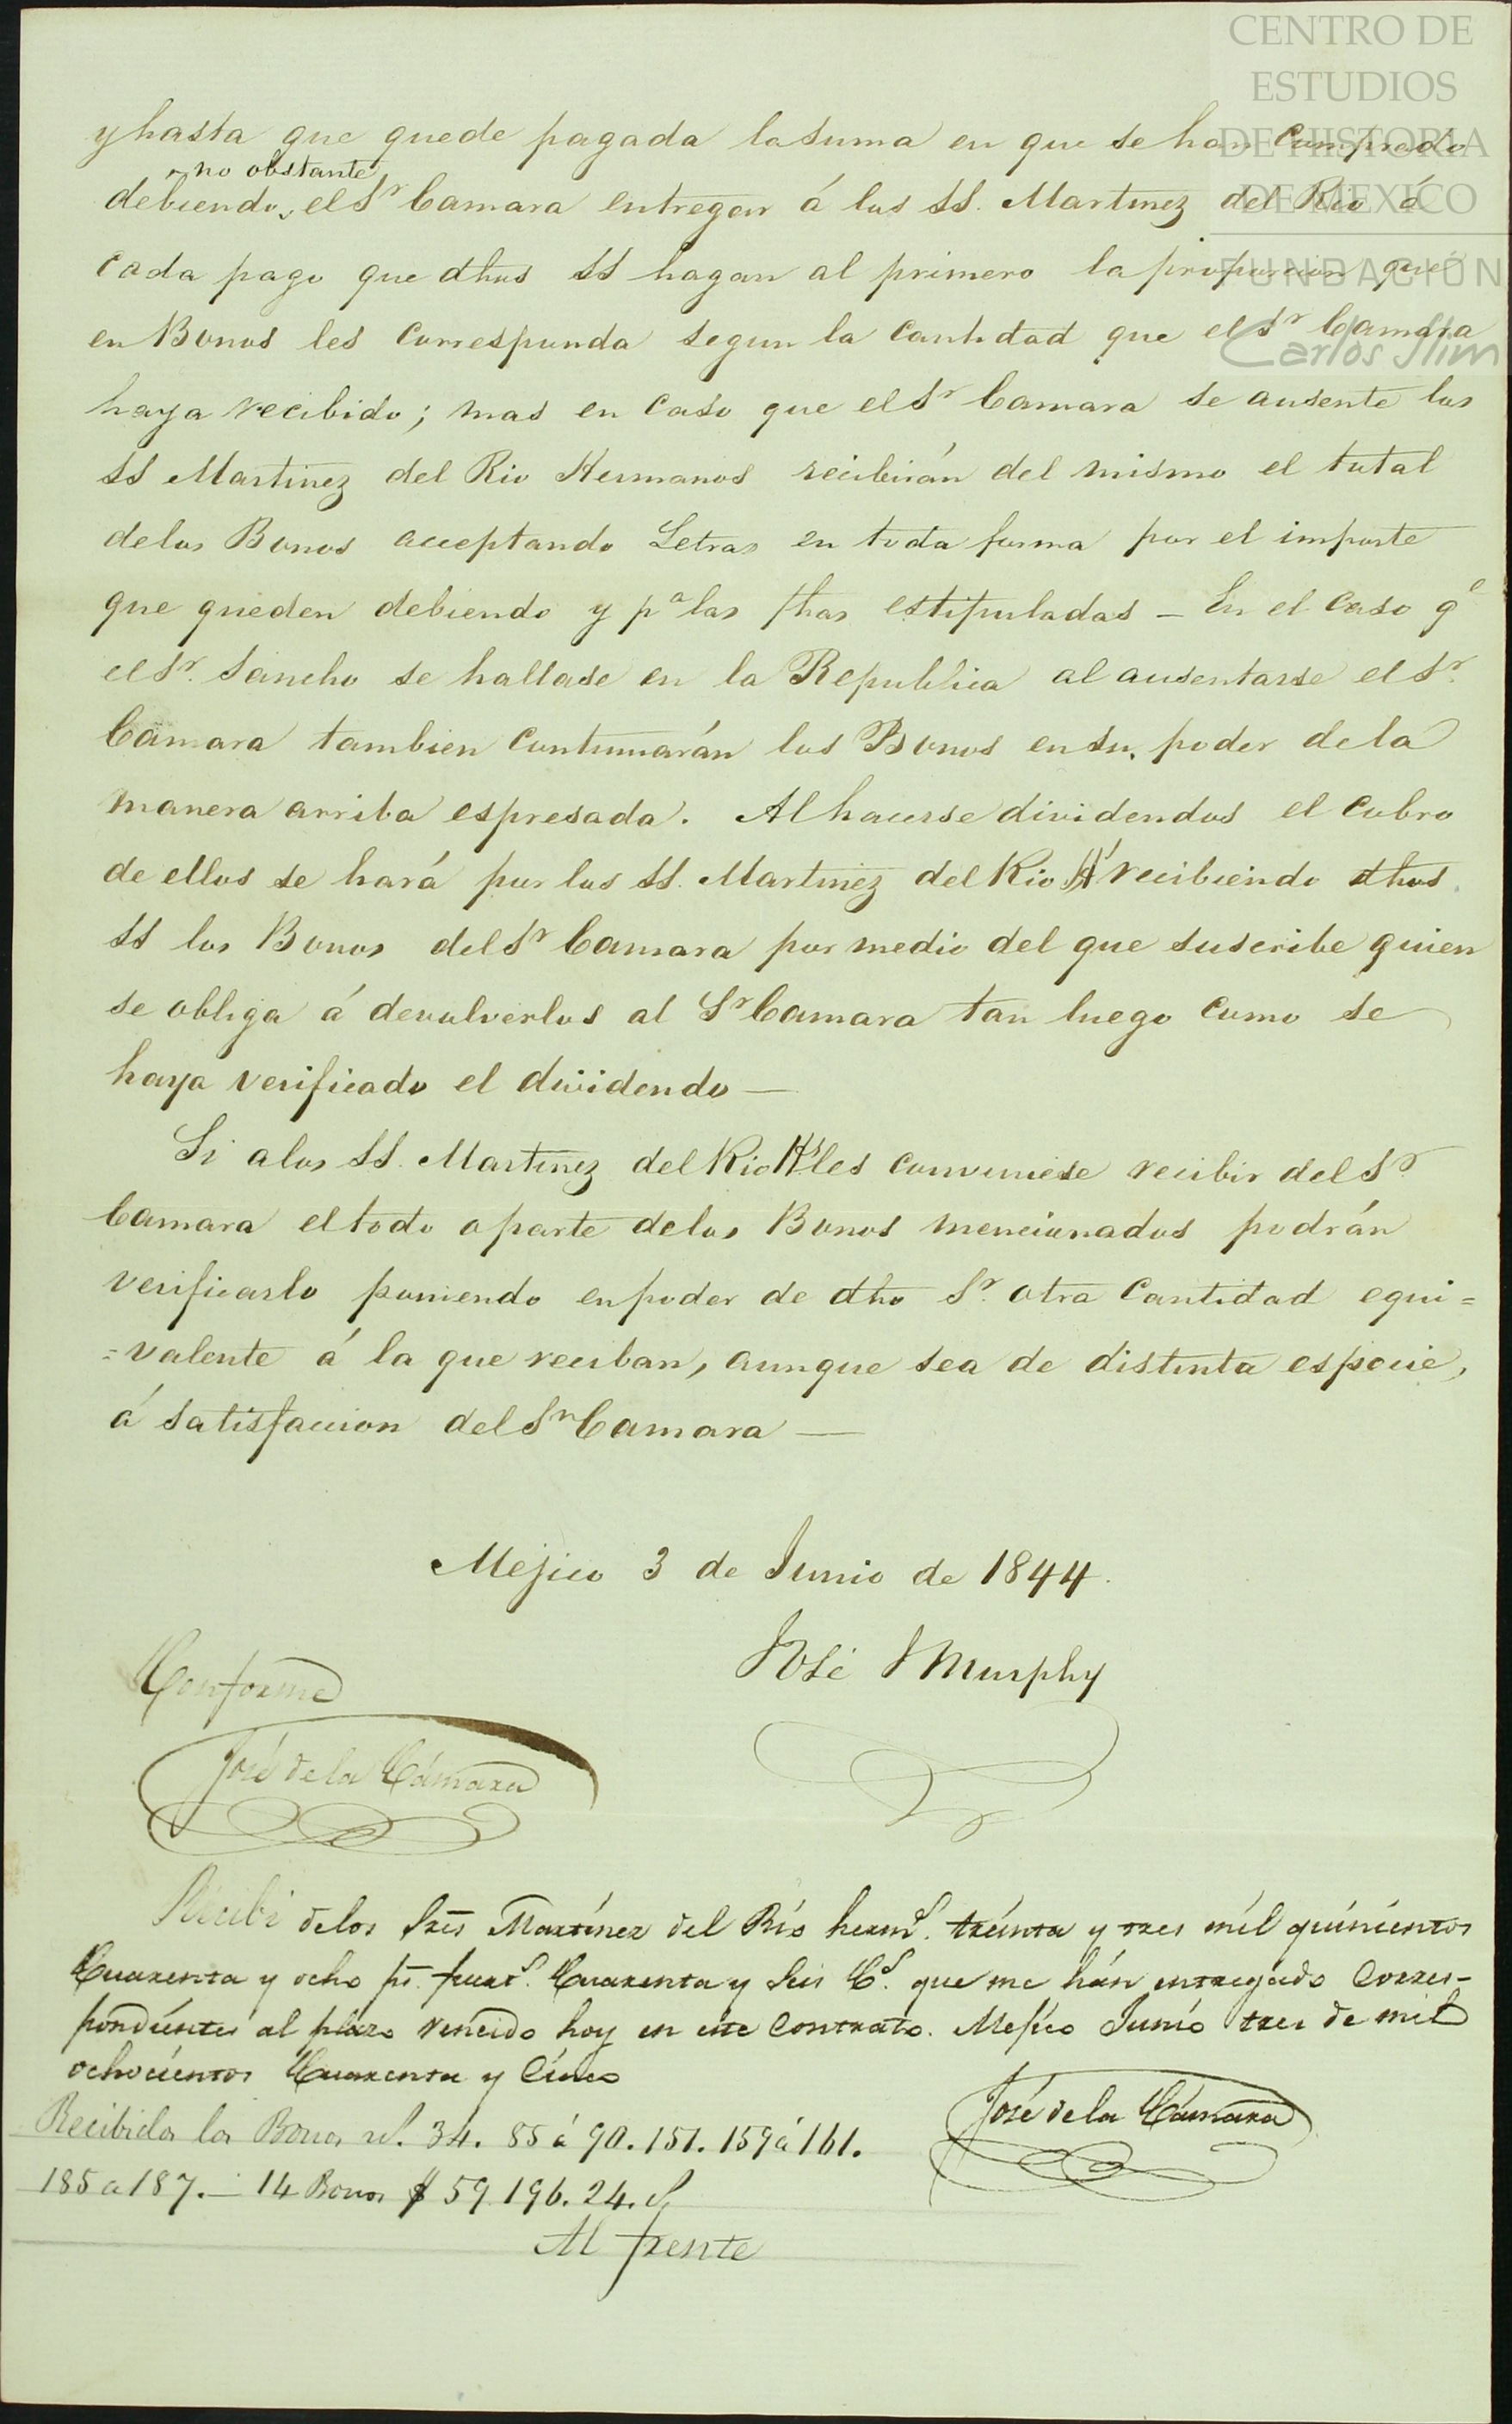 CENTRO DE
ESTUDIOS
DE HISTORIA
DE MEXICO
FUNDACIÓN
Carlos Slim
y hasta que quede pagada la suma en que se han comprado
no obstante
debiendo el Sr Camara entregar á los SS. Martinez del Rio á
cada pago que dhos SS hagan al primero la proporcion que
en Bonos les corresponda segun la cantidad que el Sr Camara
haya recibido; mas en caso que el Sr Camara se ausente los
SS Martinez del Rio Hermanos recibirán del mismo el total
de los Bonos acceptando Letras en toda forma por el importe
que queden debiendo y pa las fhas estipuladas - En el caso qe
el Sr. Sancho se hallase en la Republica al ausentarse el Sr.
Camara tambien continuarán los Bonos en su poder de la
manera arriba espresada. Al hacerse dividendos el cobro
de ellos se hará por los SS. Martinez del Rio Hs recibiendo dhos
SS los Bonos del Sr Camara por medio del que suscribe quien
se obliga á devolverlos al Sr Camara tan luego como se
haya verificado el dividendo —
Si a los SS. Martinez del Rio Hs les conviniese recibir del Sr
Camara el todo o parte de los Bonos mencionados podrán
verificarlo poniendo en poder de dho Sr. otra cantidad equi=
=valente á la que reciban, aunque sea de distinta especie,
á satisfaccion del Sr Camara —
Mejico 3 de Junio de 1844.
José Murphy
Conforme
José de la Cámara
Recibi de los Sres Martínez del Río herms. treinta y tres mil quinientos
Cuarenta y ocho ps. Cuarenta y Seis Cs. que me hán entregado Corres-
pondientes al plazo vencido hoy en este Contrato. Mejico Junio tres de mil
ochocientos Cuarenta y Cinco
José de la Cámara
Recibidos los Bonos 34. 85 á 90. 151. 159 á 161.
185 a 187. - 14 Bonos $ 59.196.24.
Al frente